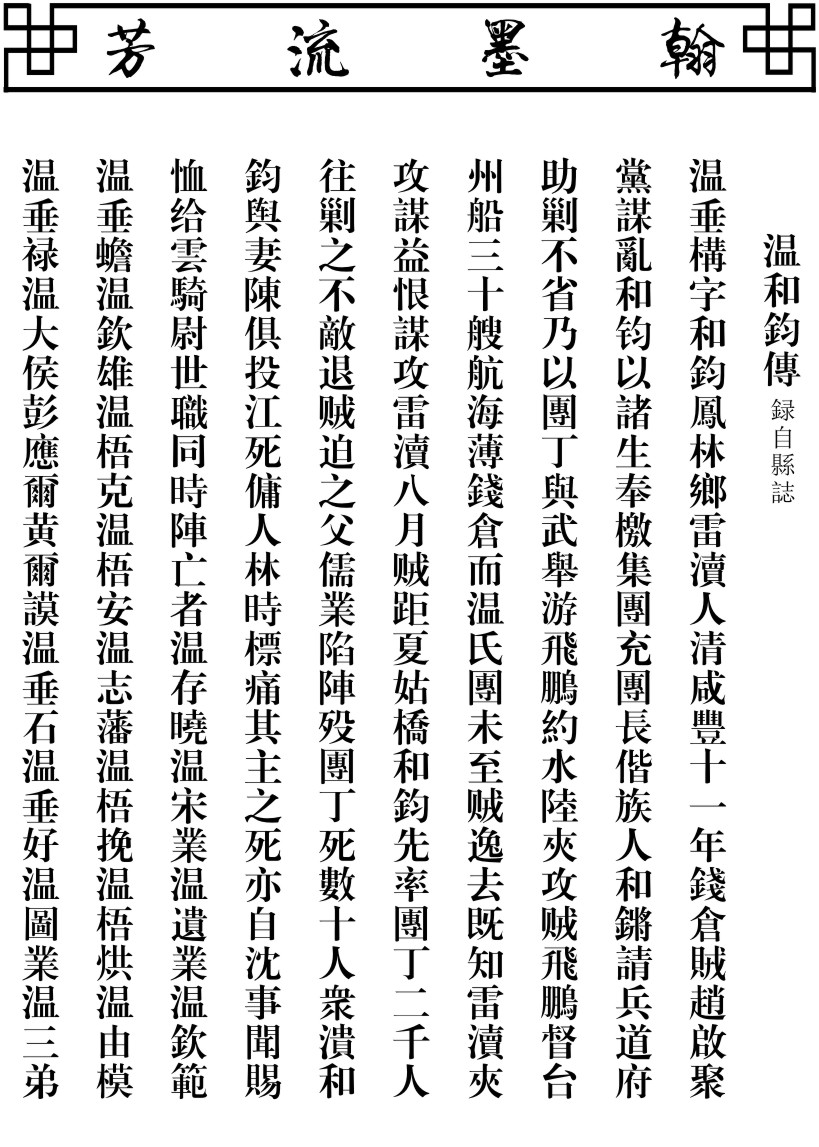 翰墨流芳
温和鈞傳 録自縣誌
温垂構字和鈞鳳林鄉雷瀆人清咸豐十一年錢倉賊趙啟聚
黨謀亂和钧以諸生奉檄集團充團長偕族人和鏘請兵道府
助剿不省乃以團丁與武舉游飛鵬約水陸夾攻贼飛鵬督台
州船三十艘航海薄錢倉而温氏團未至贼逸去既知雷瀆夾
攻謀益恨謀攻雷瀆八月贼距夏姑橋和鈞先率團丁二千人
往剿之不敵退贼迫之父儒業陷陣殁團丁死數十人衆潰和
鈞與妻陳俱投江死傭人林時標痛其主之死亦自沈事聞賜
恤给雲騎尉世職同時陣亡者温存曉温宋業温遺業温欽範
温垂蟾温欽雄温梧克温梧安温志藩温梧挽温梧烘温由模
温垂禄温大侯彭應爾黄爾謨温垂石温垂好温圖業温三弟